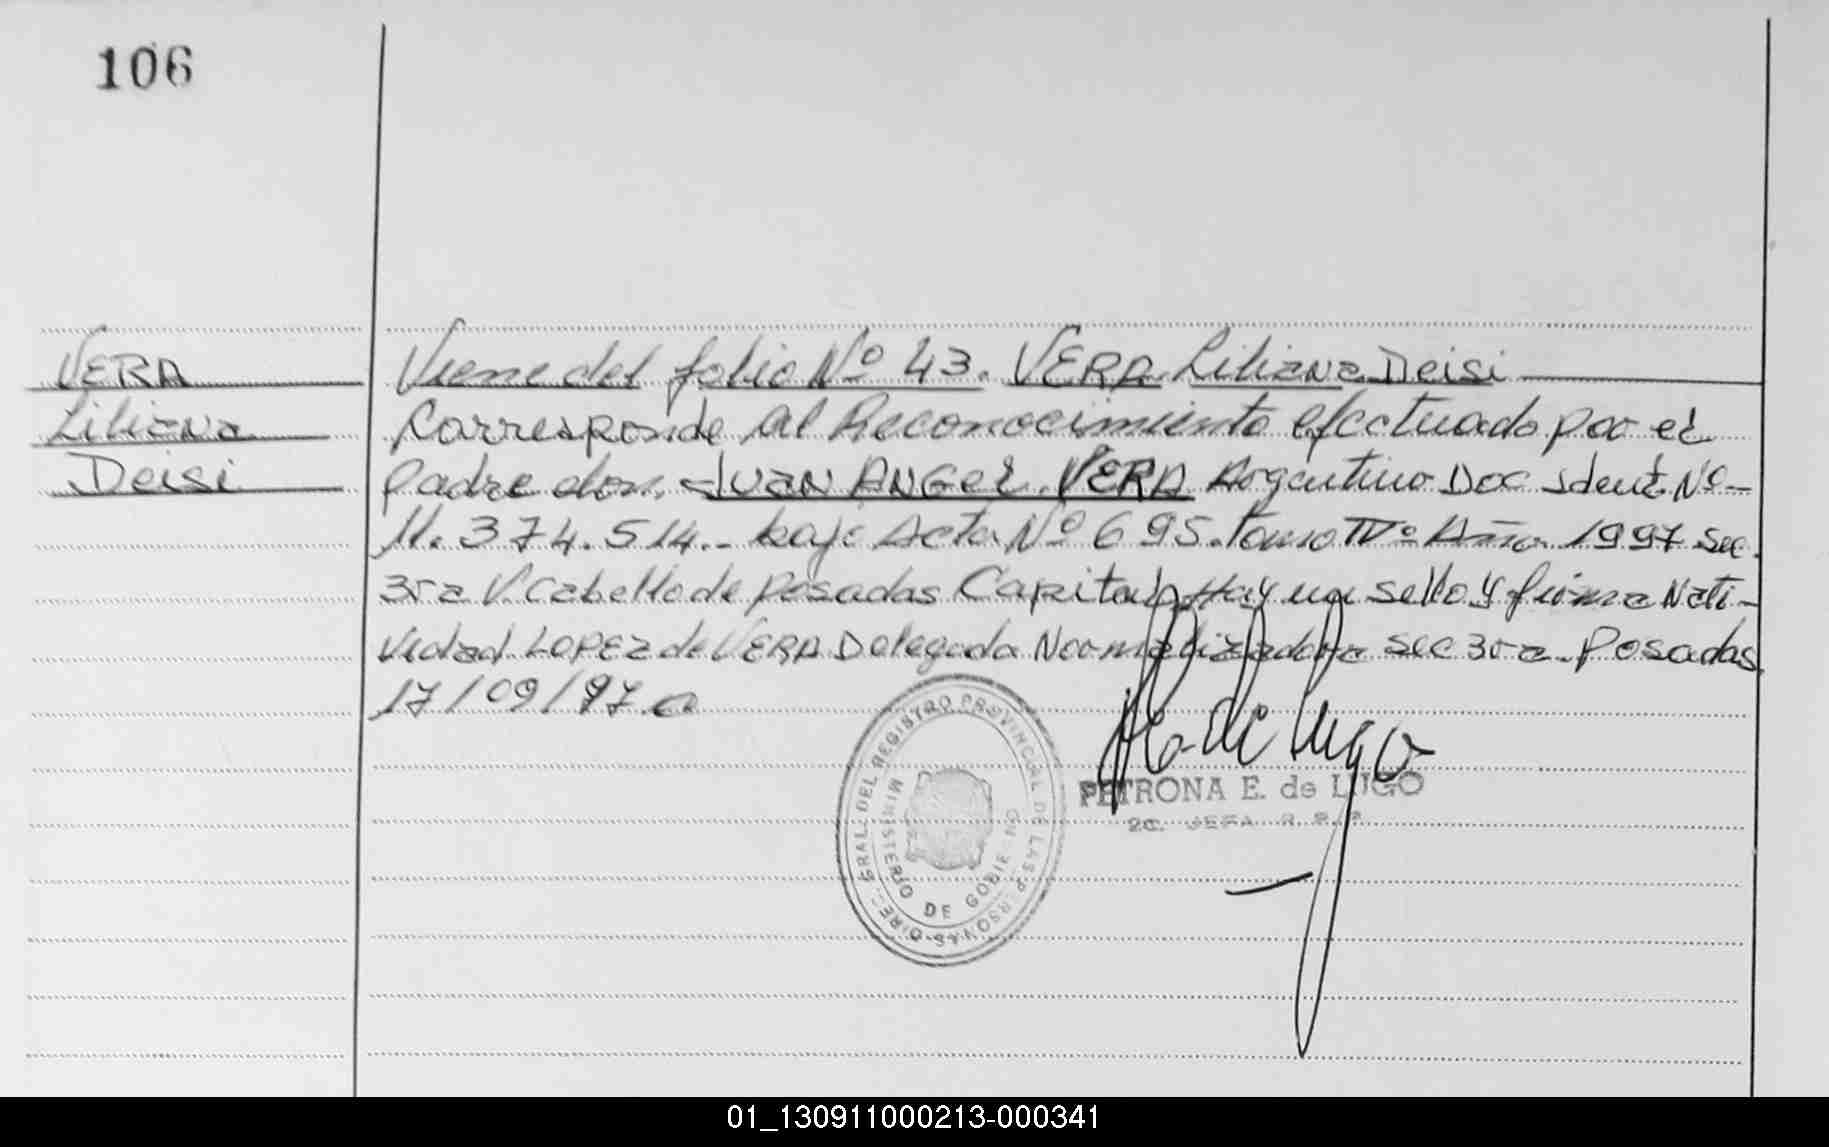 106
VERA
Liliana
Deisi
Viene del folio Nº 43. VERA Liliana Deisi
Corresponde al Reconocimiento efectuado por el
padre don. JUAN ANGEL VERA Argentino Doc Ident. Nº-
11.374.514.- bajo Acta Nº 695. Tomo IVº Año 1997 Sec.
3ra V. Cabello de Posadas Capital. Hay un sello y firma Nati-
vidad LOPEZ de VERA Delegada Normalizadora Sec 3ra. Posadas
17/09/97.
DIREC. GRAL. DEL REGISTRO PROVINCIAL DE LAS PERSONAS
MINISTERIO DE GOBIERNO
PETRONA E. de LUGO
JEFA R. P. P.
01_130911000213-000341